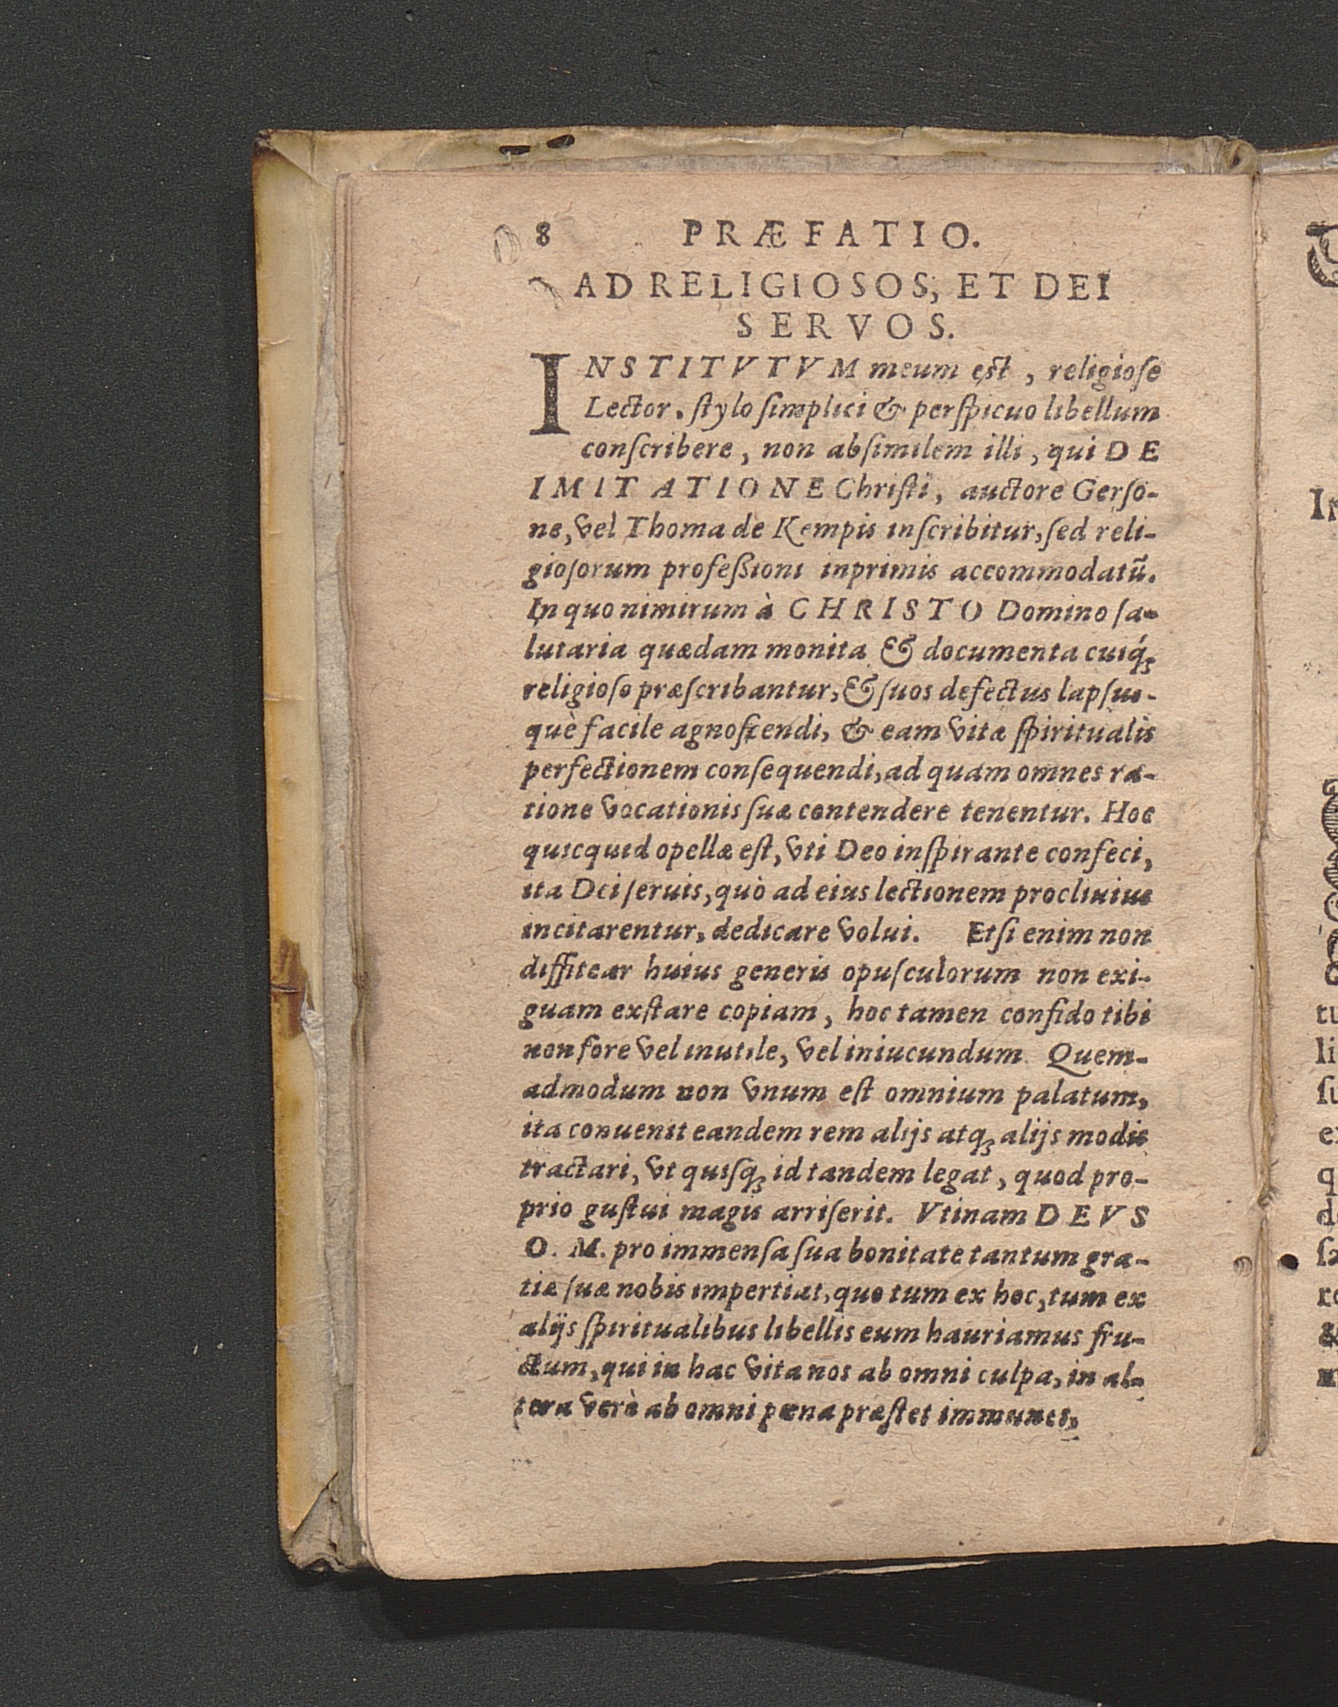 8 PRÆFATIO.
AD RELIGIOSOS, ET DEI
SERVOS.
INSTITVTVM meum est, religiose
Lector. stylo simplici & perspicuo libellum
conscribere, non absimilem illi, qui DE
IMITATIONE Christi, auctore Gerso-
ne, vel Thoma de Kempis inscribitur, sed reli-
giosorum professioni inprimis accommodatũ.
In quo nimirum à CHRISTO Domino sa-
lutaria quædam monita & documenta cuiq́;
religioso præscribantur, & suos defectus lapsus-
què facile agnoscendi, & eam vitæ spiritualis
perfectionem consequendi, ad quam omnes ra-
tione vocationis suæ contendere tenentur. Hoc
quicquid opellæ est, vti Deo inspirante confeci,
ita Dei seruis, quò ad eius lectionem procliuius
incitarentur, dedicare volui. Etsi enim non
diffitear huius generis opusculorum non exi-
guam exstare copiam, hoc tamen confido tibi
non fore vel inutile, vel iniucundum Quem-
admodum non vnum est omnium palatum,
ita conuenit eandem rem alijs atq; alijs modis
tractari, vt quisq; id tandem legat, quod pro-
prio gustui magis arriserit. Vtinam DEVS
O. M. pro immensa sua bonitate tantum gra-
tiæ suæ nobis impertiat, quo tum ex hoc, tum ex
alijs spiritualibus libellis eum hauriamus fru-
ctum, qui in hac vita nos ab omni culpa, in al-
tera verò ab omni pœna præstet immunes,